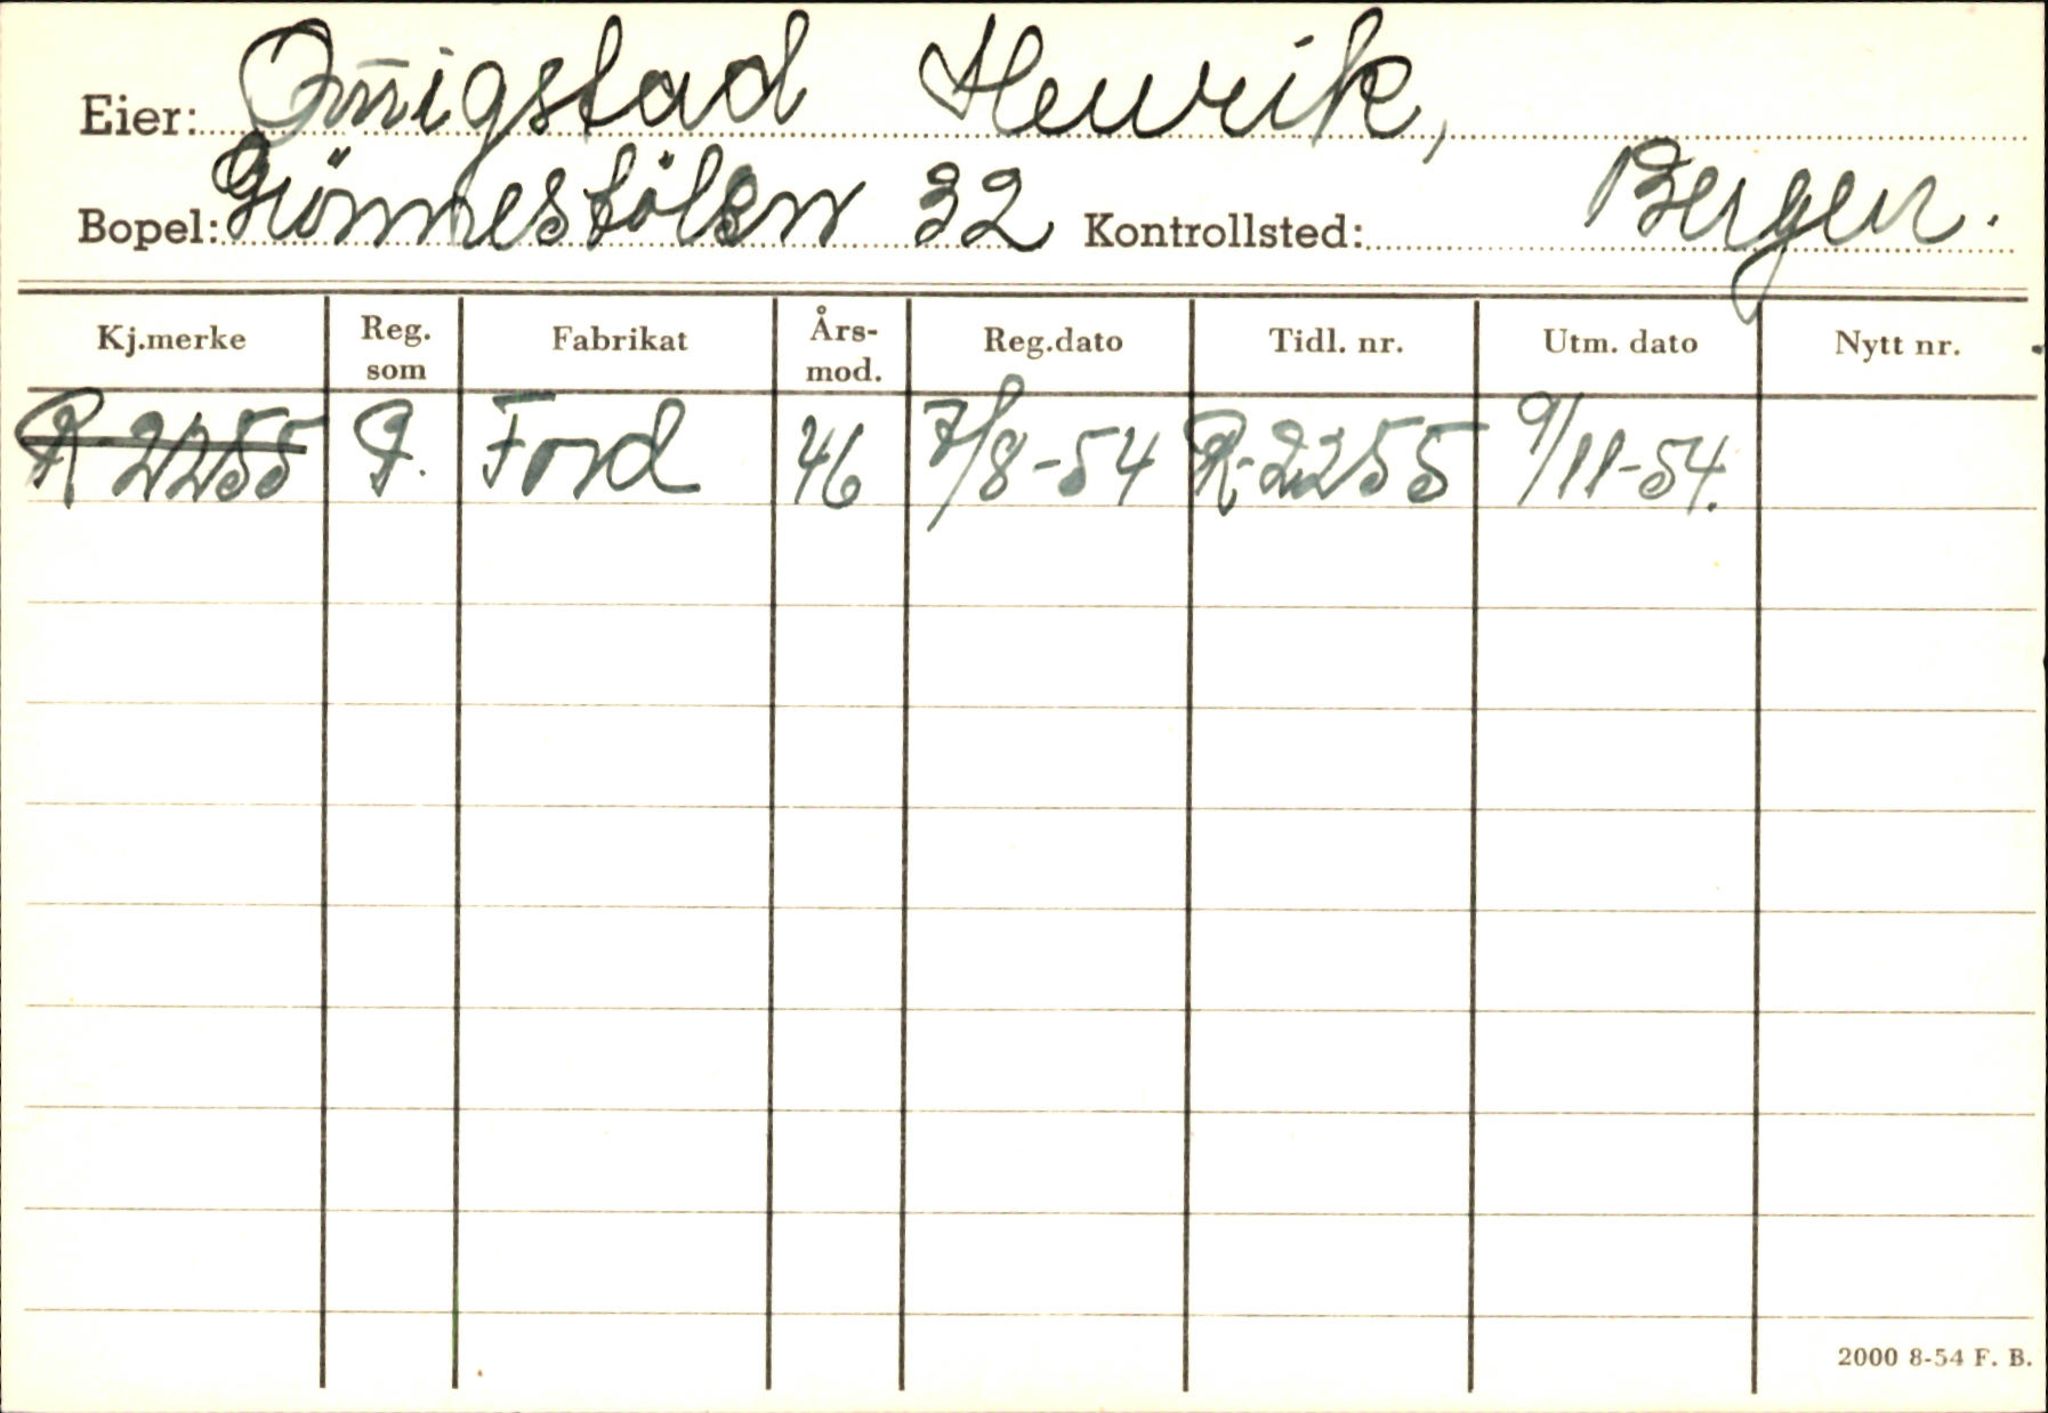 Eier: Henrik,
Bopel: Grönnestölen 32 Kontrollsted: Bergen.
Kj.merke Reg. som Fabrikat Års-mod. Reg.dato Tidl. nr. Utm. dato Nytt nr.
R-2255 P. Ford 46 7/8-54 R-2255 9/11-54.
2000 8-54 F. B.